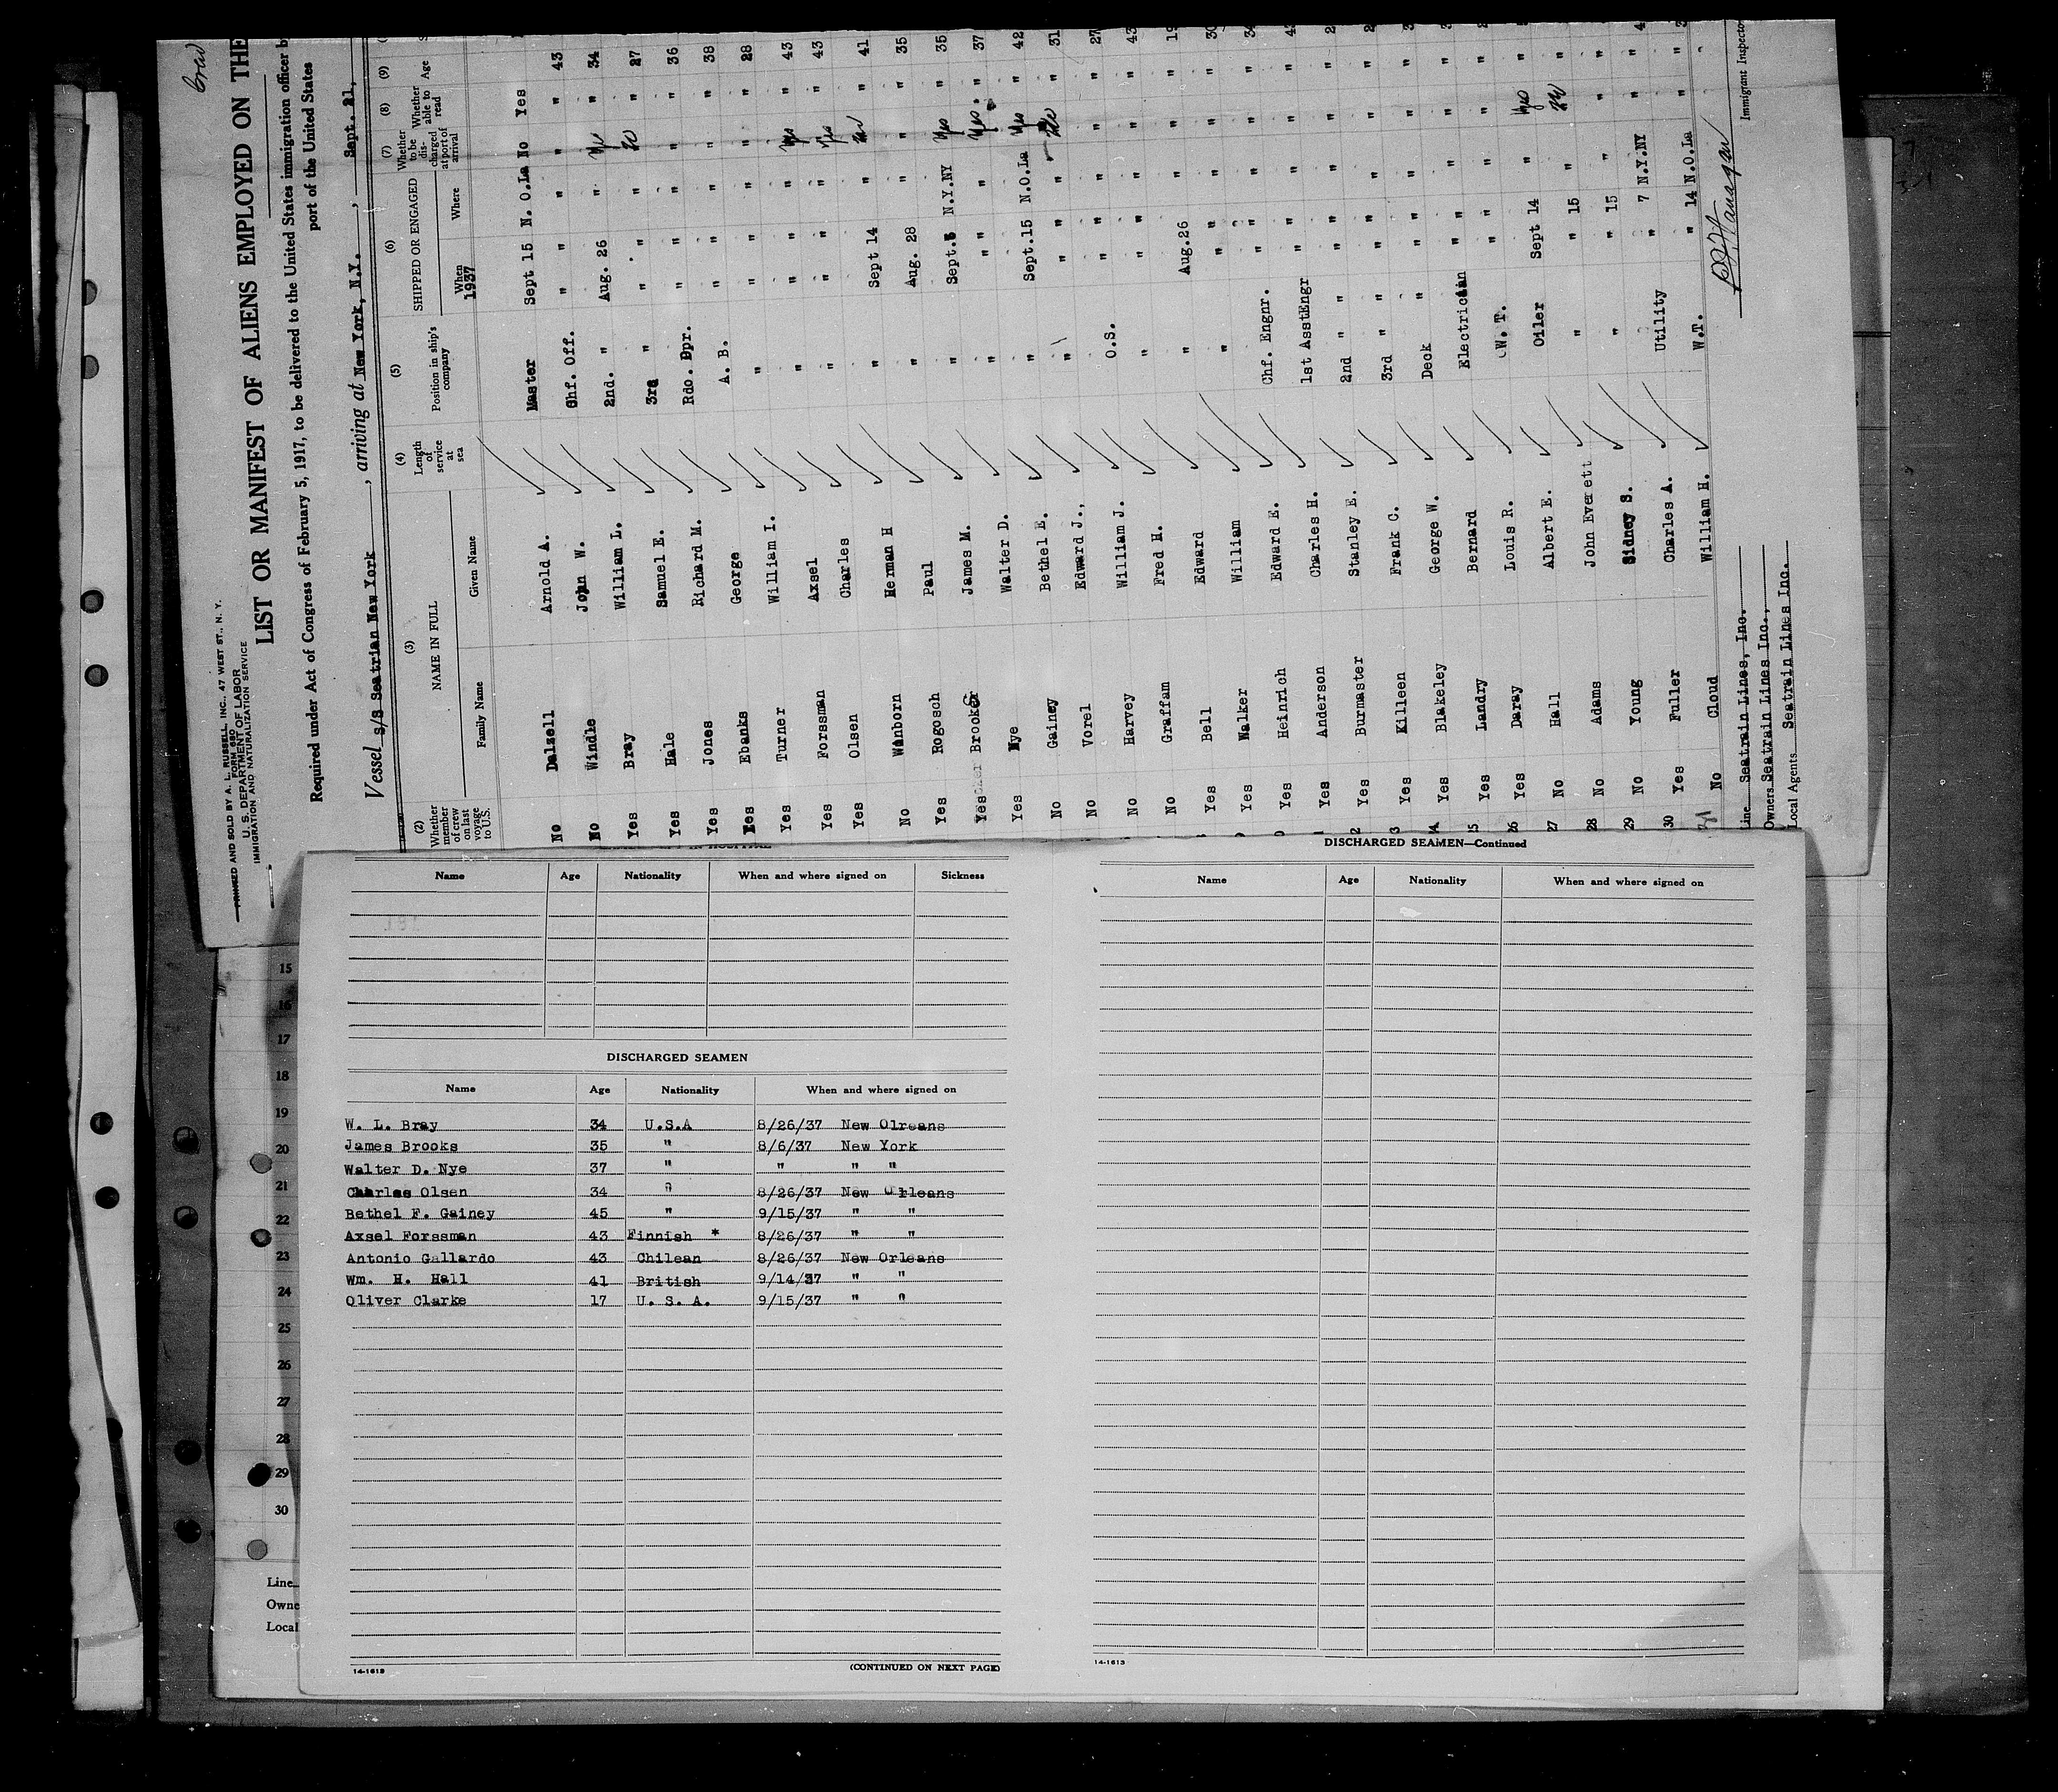 Crew
PRINTED AND SOLD BY A. L. RUSSELL, INC., 47 WEST ST., N. Y.
FORM 680
U. S. DEPARTMENT OF LABOR
IMMIGRATION AND NATURALIZATION SERVICE
LIST OR MANIFEST OF ALIENS EMPLOYED ON THE
Required under Act of Congress of February 5, 1917, to be delivered to the United States immigration officer b
port of the United States
Vessel S/S Seatrian New York , arriving at New York, N.Y. , Sept. 21,
(2) Whether member of crew on last voyage to U.S.
(3) NAME IN FULL
Family Name Given Name
(4) Length of service at sea
(5) Position in ship's company
(6) SHIPPED OR ENGAGED
When 1937 Where
(7) Whether to be discharged at port of arrival
(8) Whether able to read
(9) Age
No Dalzell Arnold A. Master Sept 15 N. O.La No Yes 43
No Windle John W. Chf. Off. " " " " 34
Yes Bray William L. 2nd. " Aug. 26 " Yes " 27
Yes Hale Samuel E. 3rd " " " No " 36
Yes Jones Richard M. Rdo. Opr. " " " " 38
Yes Ebanks George A. B. " " " " 28
Yes Turner William I. " " " " " 43
Yes Forssman Axsel " " " Yes " 43
Yes Olsen Charles " " " Yes " 41
No Winborn Herman H " Sept 14 " No " 35
Yes Rogosch Paul " Aug. 28 " " " 35
Yes Brooks James M. " Sept. N.Y.NY Yes " 37
Yes Nye Walter D. " " " Yes " 42
No Gainey Bethel E. " Sept.15 N.O.La Yes " 31
No Vorel Edward J., " " " No " 27
No Harvey William J. O.S. " " " " 43
No Graffam Fred H. " " " " " 19
Yes Bell Edward " Aug.26 " " " 30
Yes Walker William " " " " "
Yes Heinrich Edward E. Chf. Engnr. " " " "
Yes Anderson Charles H. 1st AsstEngr " " " "
2 Yes Burmaster Stanley E. 2nd " " " " "
3 Yes Killeen Frank C. 3rd " " " " "
4 Yes Blakeley George W. Deck " " " " "
5 Yes Landry Bernard Electrician " " " "
26 Yes Daray Louis R. W. T. " " " "
27 No Hall Albert E. Oiler Sept 14 " Yes "
28 No Adams John Everett " " 15 " No "
29 No Young Sidney S. " " 15 " " "
30 Yes Fuller Charles A. Utility " 7 N.Y.NY " "
31 No Cloud William H. W.T. " 14 N.O.La " "
Line Seatrain Lines, Inc.
Owners Seatrain Lines Inc.,
Local Agents Seatrain Lines Inc.
Immigrant Inspector
Name Age Nationality When and where signed on Sickness
DISCHARGED SEAMEN
Name Age Nationality When and where signed on
W. L. Bray 34 U.S.A 8/26/37 New Olreans
James Brooks 35 " 8/6/37 New York
Walter D. Nye 37 " " " "
Charles Olsen 34 " 8/26/37 New Orleans
Bethel F. Gainey 45 " 9/15/37 " "
Axsel Forssman 43 Finnish * 8/26/37 " "
Antonio Gallardo 43 Chilean 8/26/37 New Orleans
Wm. H. Hall 41 British 9/14/37 " "
Oliver Clarke 17 U. S. A. 9/15/37 " "
14-1613 (CONTINUED ON NEXT PAGE)
DISCHARGED SEAMEN—Continued
Name Age Nationality When and where signed on
14-1613
15
16
17
18
19
20
21
22
23
24
25
26
27
28
29
30
Line
Owne
Local